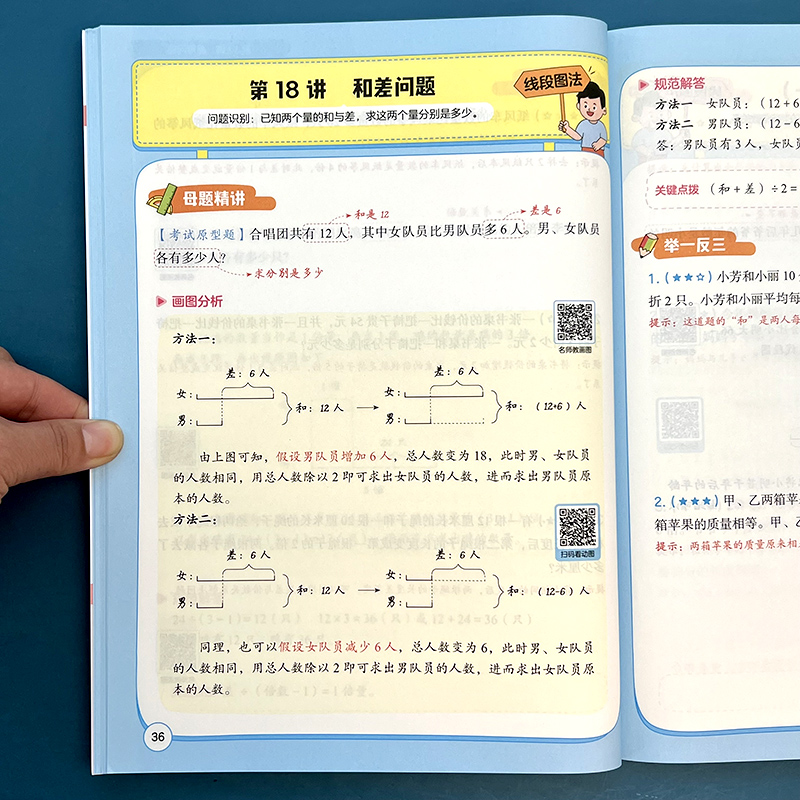 第 18 讲 和差问题
线段图法
问题识别：已知两个量的和与差，求这两个量分别是多少。
母题精讲
和是 12
差是 6
【考试原型题】合唱团共有 12 人，其中女队员比男队员多 6 人。男、女队员
各有多少人？
求分别是多少
画图分析
名师教画图
方法一：
差：6 人
女：
男：
和：12 人
差：6 人
女：
男：
和：（12+6）人
由上图可知，假设男队员增加 6 人，总人数变为 18，此时男、女队员
的人数相同，用总人数除以 2 即可求出女队员的人数，进而求出男队员原
本的人数。
方法二：
扫码看动图
差：6 人
女：
男：
和：12 人
差：6 人
女：
男：
和：（12-6）人
同理，也可以假设女队员减少 6 人，总人数变为 6，此时男、女队员
的人数相同，用总人数除以 2 即可求出男队员的人数，进而求出女队员原
本的人数。
36
规范解答
方法一 女队员：（12+6
方法二 男队员：（12-6
答：男队员有 3 人，女队员
关键点拨 （和+差）÷2=
举一反三
1.（★★☆）小芳和小丽 10
折 2 只。小芳和小丽平均每
提示：这道题的“和”是两人每
2.（★★★）甲、乙两箱苹
箱苹果的质量相等。甲、乙
提示：两箱苹果的质量原来相